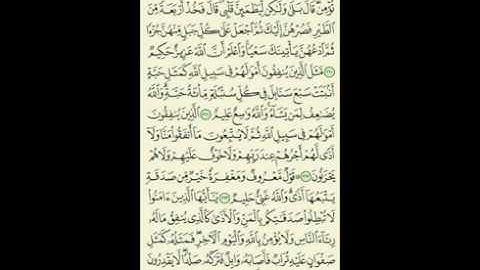 تُؤْمِنۖ قَالَ بَلَىٰ وَلَٰكِن لِّيَطْمَئِنَّ قَلْبِيۖ قَالَ فَخُذْ أَرْبَعَةً مِّنَ
ٱلطَّيْرِ فَصُرْهُنَّ إِلَيْكَ ثُمَّ ٱجْعَلْ عَلَىٰ كُلِّ جَبَلٍ مِّنْهُنَّ جُزْءًا
ثُمَّ ٱدْعُهُنَّ يَأْتِينَكَ سَعْيًاۚ وَٱعْلَمْ أَنَّ ٱللَّهَ عَزِيزٌ حَكِيمٌ
مَّثَلُ ٱلَّذِينَ يُنفِقُونَ أَمْوَٰلَهُمْ فِي سَبِيلِ ٱللَّهِ كَمَثَلِ حَبَّةٍ
أَنۢبَتَتْ سَبْعَ سَنَابِلَ فِي كُلِّ سُنۢبُلَةٍ مِّا۟ئَةُ حَبَّةٍۗ وَٱللَّهُ
يُضَٰعِفُ لِمَن يَشَآءُۗ وَٱللَّهُ وَٰسِعٌ عَلِيمٌ ٱلَّذِينَ يُنفِقُونَ
أَمْوَٰلَهُمْ فِي سَبِيلِ ٱللَّهِ ثُمَّ لَا يُتْبِعُونَ مَآ أَنفَقُوا۟ مَنًّا وَلَآ
أَذًىۙ لَّهُمْ أَجْرُهُمْ عِندَ رَبِّهِمْ وَلَا خَوْفٌ عَلَيْهِمْ وَلَا هُمْ
يَحْزَنُونَ قَوْلٌ مَّعْرُوفٌ وَمَغْفِرَةٌ خَيْرٌ مِّن صَدَقَةٍ
يَتْبَعُهَآ أَذًىۗ وَٱللَّهُ غَنِيٌّ حَلِيمٌ يَٰٓأَيُّهَا ٱلَّذِينَ ءَامَنُوا۟
لَا تُبْطِلُوا۟ صَدَقَٰتِكُم بِٱلْمَنِّ وَٱلْأَذَىٰ كَٱلَّذِي يُنفِقُ مَالَهُۥ
رِئَآءَ ٱلنَّاسِ وَلَا يُؤْمِنُ بِٱللَّهِ وَٱلْيَوْمِ ٱلْءَاخِرِۖ فَمَثَلُهُۥ كَمَثَلِ
صَفْوَانٍ عَلَيْهِ تُرَابٌ فَأَصَابَهُۥ وَابِلٌ فَتَرَكَهُۥ صَلْدًاۖ لَّا يَقْدِرُونَ